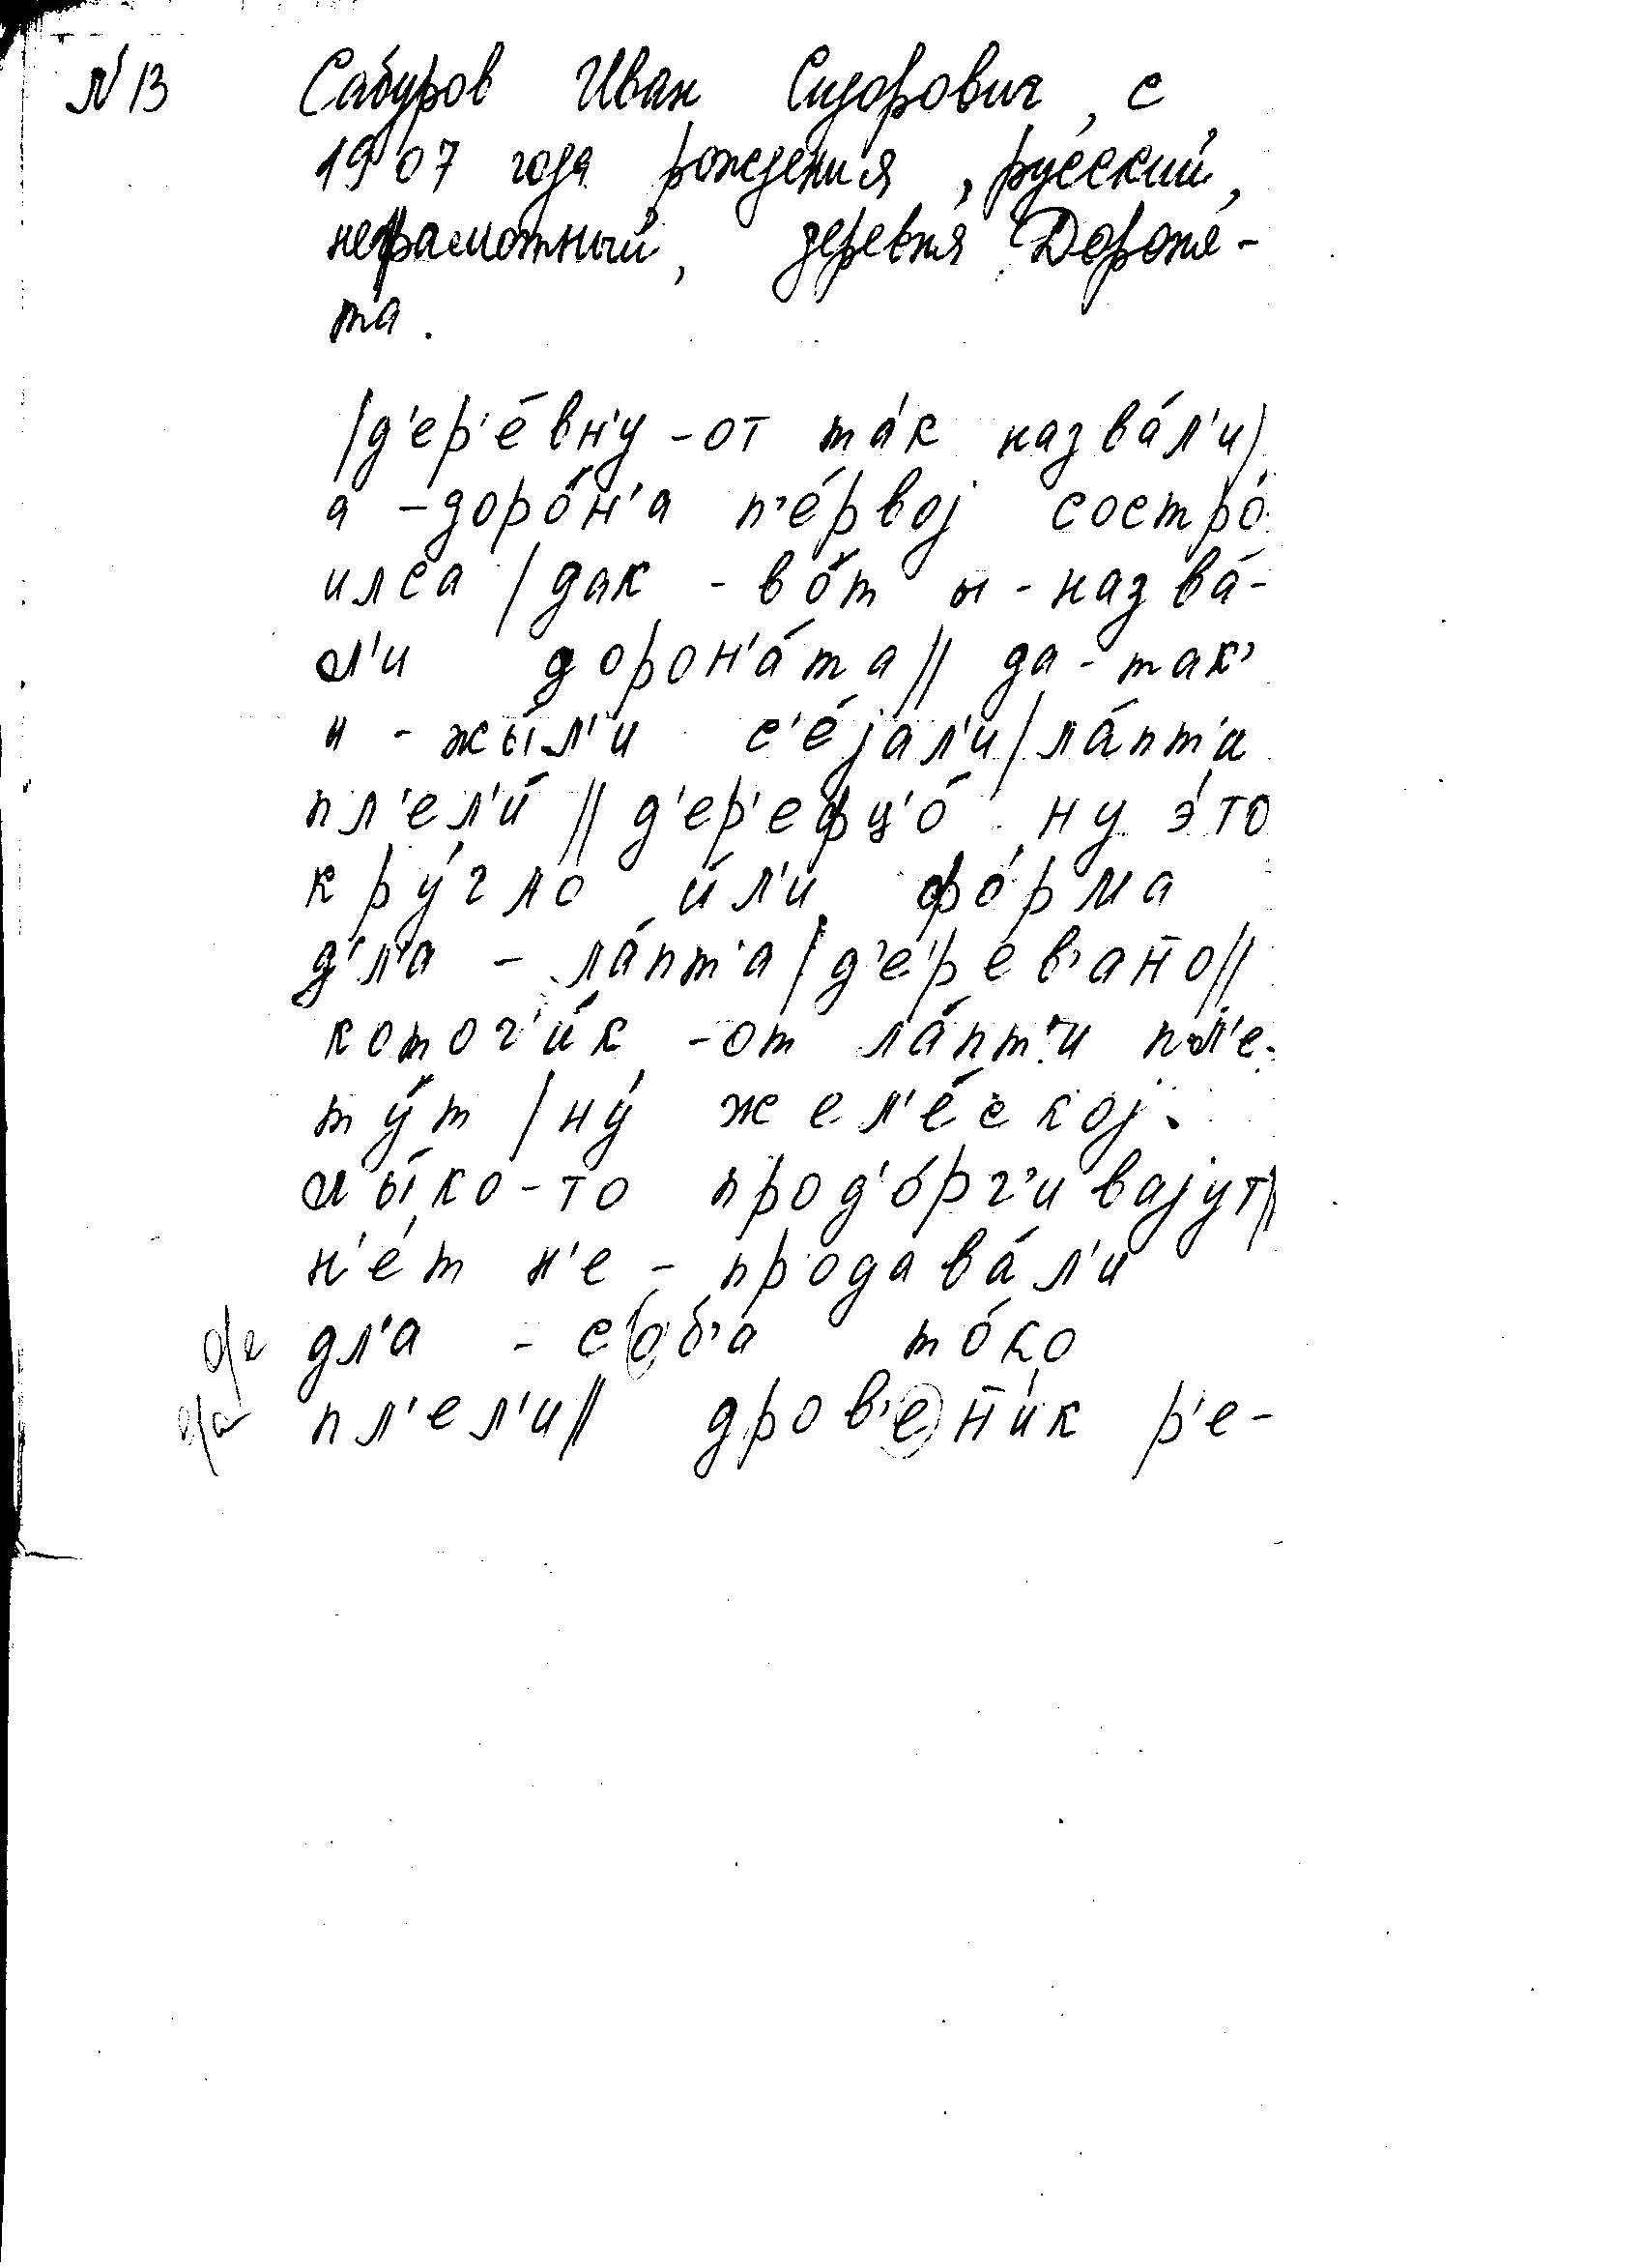 № 13 Сабуров Иван Сидорович, с
1907 года рождения, русский,
неграмотный, деревня Дороня-
та.
/д'ер'е́вн'у-от та́к назва́л'и/
а -доро́н'а п'е́рвој состро́
илса / дак - во́т ы - назва́-
л'и дорон'а́та // да - так'
и - жы́л'и с'е́јал'и / ла́пт'и
пл'ел'и́ // д'ер'ефц'о́ ну э́то
кру́гло и́л'и фо́рма
д'л'а - ла́пт'а / д'е́р'ев'ан̄о //
коточ'и́к -от ла́пт'и пл'е-
ту́т / ну́ жел'е́ској.
лы́ко-то прод'о́рг'ивајут //
н'е́т н'е - продава́л'и
о/е дл'а - соб'а́ то́ко
е/а пл'ел'и // дров'ен̄и́к р'е-